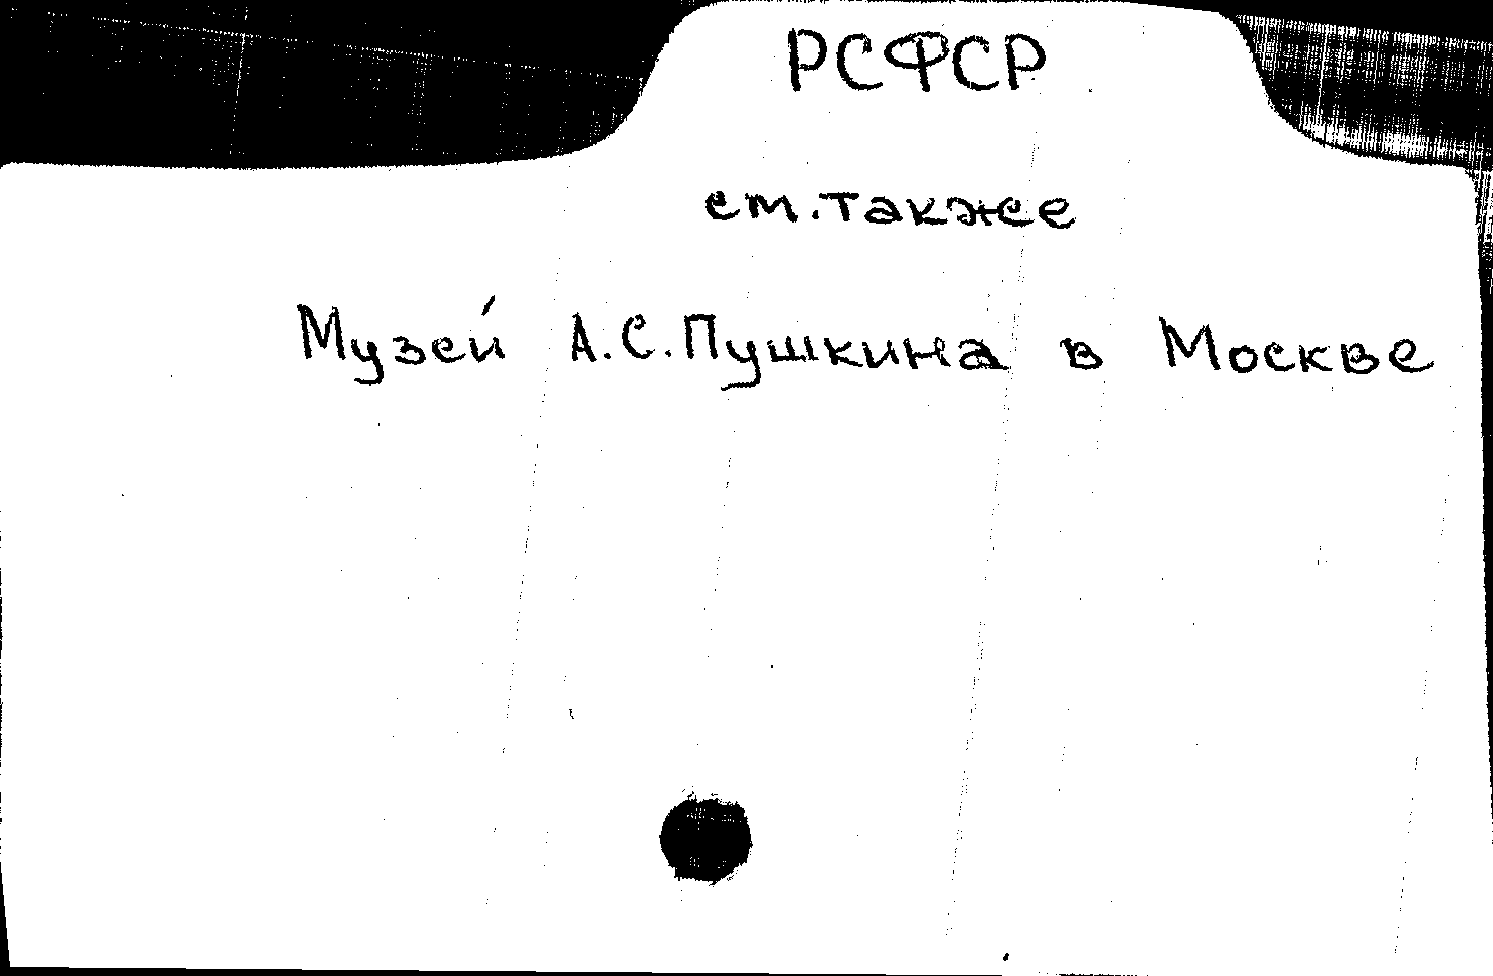 РСФСР
см. также
Музей А.С. Пушкина в Москве